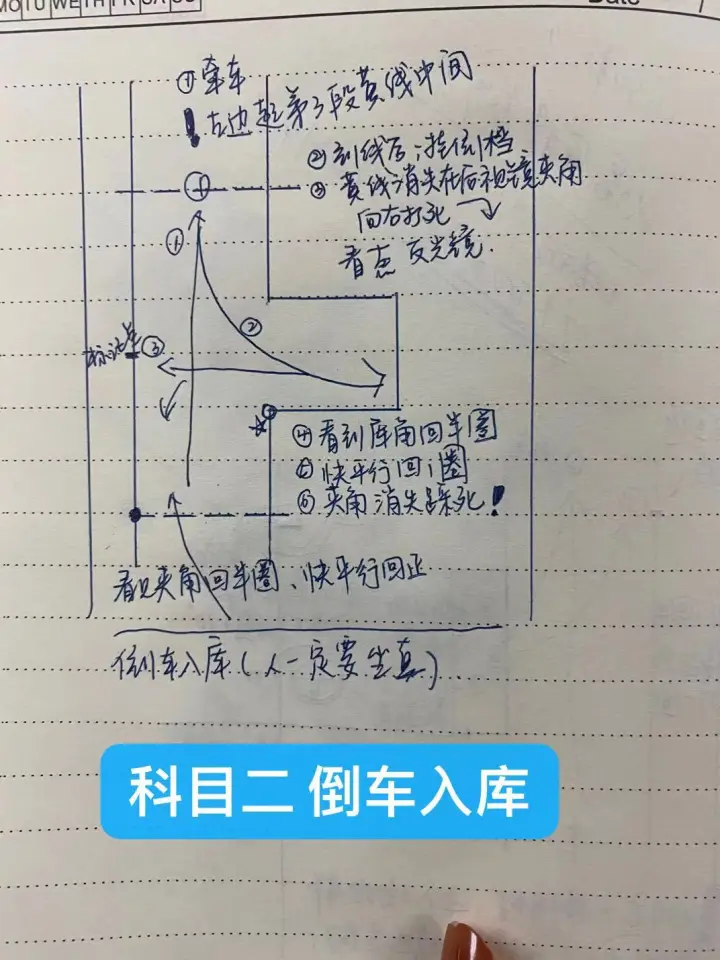 MO TU WE TH FR SA SU
Date
①牵车
!左边起第3段黄线中间
②到线后,挂倒档
③黄线消失在后视镜夹角
向右打死
看点 反光镜.
①
②
标记点 ③
④看到库角回半圈
⑤快平行回1圈
⑥夹角消失踩死!
看见夹角回半圈、快平行回正
倒车入库(人一定要坐直)
科目二 倒车入库